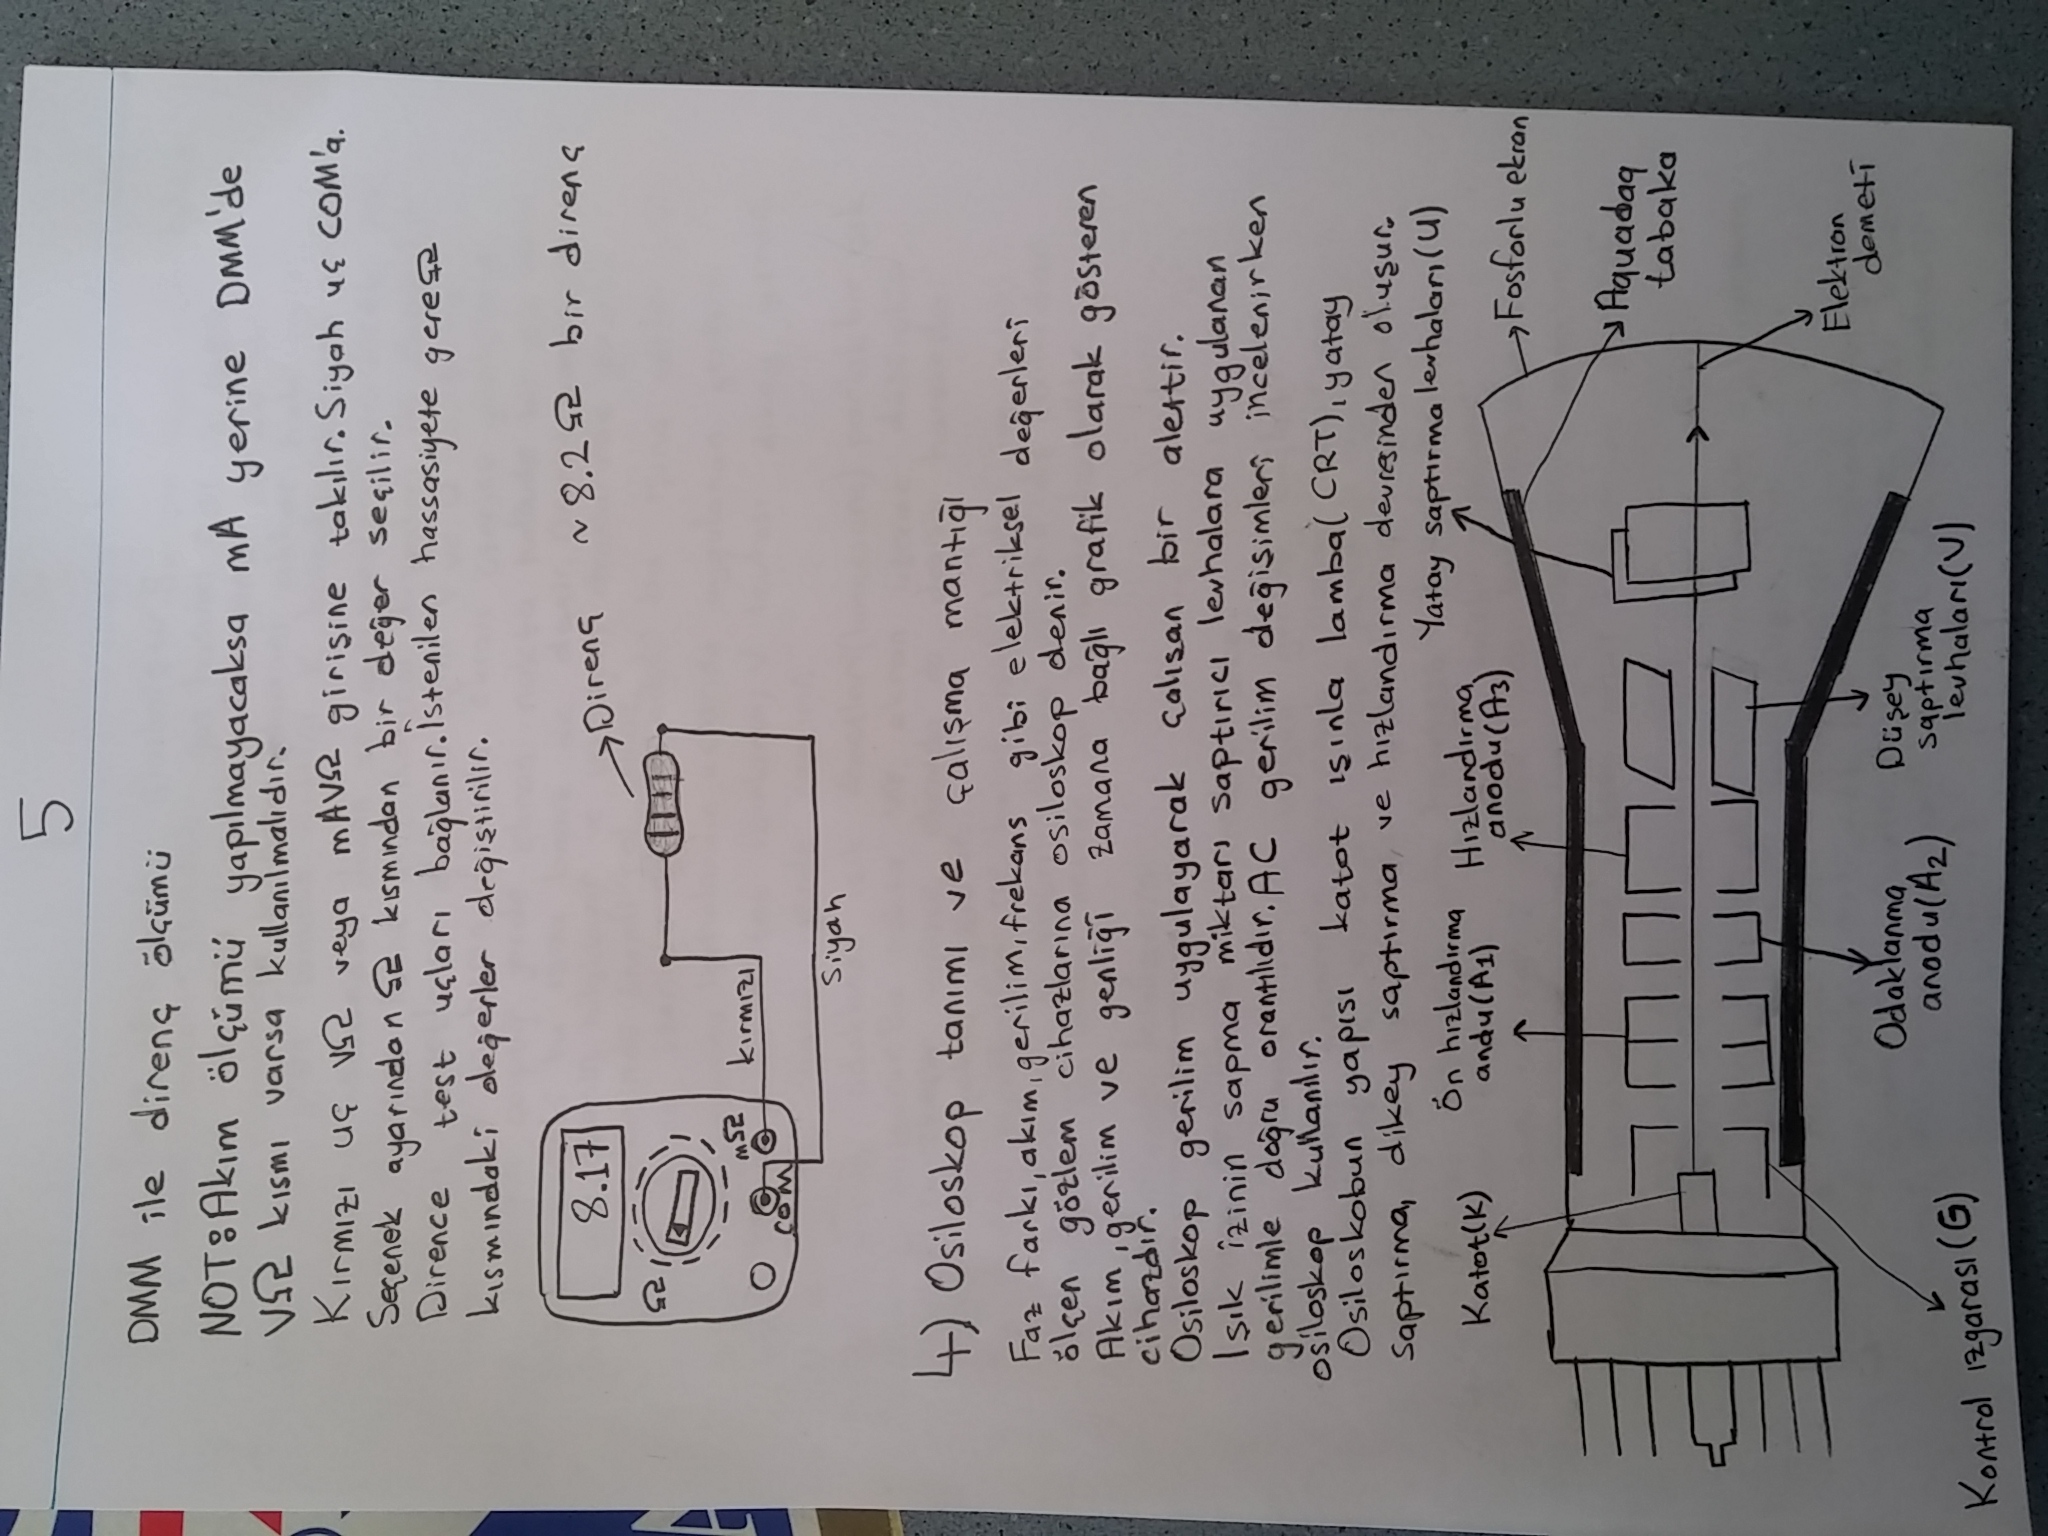 5
DMM ile direnç ölçümü
NOT: Akım ölçümü yapılmayacaksa mA yerine DMM'de
VΩ kısmı varsa kullanılmalıdır.
Kırmızı uç VΩ veya mAVΩ girişine takılır. Siyah uç COM'a.
Seçenek ayarından Ω kısmından bir değer seçilir.
Dirence test uçları bağlanır. İstenilen hassasiyete gere Ω
kısmındaki değerler değiştirilir.
8.17
Direnç ~8.2Ω bir direnç
Ω
mΩ
COM
kırmızı
Siyah
4) Osiloskop tanımı ve çalışma mantığı
Faz farkı, akım, gerilim, frekans gibi elektriksel değerleri
ölçen gözlem cihazlarına osiloskop denir.
Akım, gerilim ve genliği zamana bağlı grafik olarak gösteren
cihazdır.
Osiloskop gerilim uygulayarak çalısan bir alettir.
Işık izinin sapma miktarı saptırıcı levhalara uygulanan
gerilimle doğru orantılıdır. AC gerilim değişimleri incelenirken
osiloskop kullanılır.
Osiloskobun yapısı katot ışınla lamba (CRT), yatay
saptırma, dikey saptırma ve hızlandırma devresinden oluşur.
Yatay saptırma levhaları (U)
Katot (K)
Ön hızlandırma
andu (A1)
Hızlandırma
anodu (A3)
Fosforlu ekran
Aquadaq
tabaka
Elektron
demeti
Odaklanma
anodu (A2)
Düşey
saptırma
levhaları (V)
Kontrol ızgarası (G)